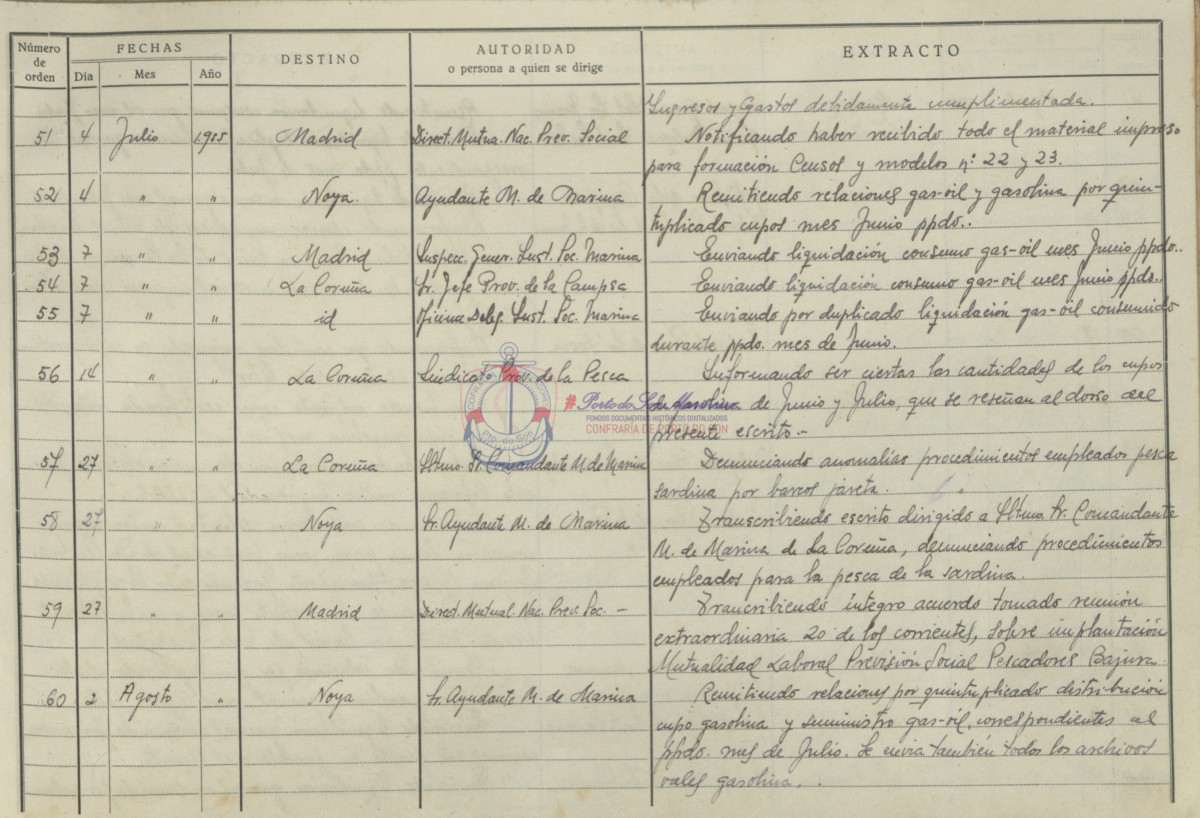 Número de orden | FECHAS | DESTINO | AUTORIDAD o persona a quien se dirige | EXTRACTO
Día | Mes | Año
Ingresos y Gastos debidamente cumplimentada.
51 4 Julio 1.955 Madrid Direct. Mutua. Nac. Prev. Social Notificando haber recibido todo el material impreso
para formación Censos y modelos nº 22 y 23.
52 4 " " Noya. Ayudante M. de Marina Remitiendo relaciones gas-oil y gasolina por quin-
tuplicado cupos mes Junio ppdo..
53 7 " " Madrid Inspecc. Gener. Inst. Soc. Marina Enviando liquidación consumo gas-oil mes Junio ppdo..
54 7 " " La Coruña Sr. Jefe Prov. de la Campsa Enviando liquidación consumo gas-oil mes Junio ppdo..
55 7 " " id Oficina Deleg. Inst. Soc. Marina Enviando por duplicado liquidación gas-oil consumido
durante ppdo. mes de Junio.
56 14 " " La Coruña Sindicato Prov. de la Pesca Informando ser ciertas las cantidades de los cupos
de Gasolina de Junio y Julio, que se reseñan al dorso del
presente escrito.-
57 27 " " La Coruña Iltmo. Sr. Comandante M. de Marina Denunciando anomalías procedimientos empleados pesca
sardina por barcos jareta.
58 27 " " Noya Sr. Ayudante M. de Marina Transcribiendo escrito dirigido a Iltmo. Sr. Comandante
M. de Marina de La Coruña, denunciando procedimientos
empleados para la pesca de la sardina.
59 27 " " Madrid Direct. Mutual. Nac. Prev. Soc. - Transcribiendo íntegro acuerdo tomado reunión
extraordinaria 20 de los corrientes, sobre implantación
Mutualidad Laboral Previsión Social Pescadores Bajura
60 2 Agosto " Noya Sr. Ayudante M. de Marina Remitiendo relaciones por quintuplicado distribución
cupo gasolina y suministro gas-oil, correspondientes al
ppdo. mes de Julio. Se envia también todos los archivos
vales gasolina.
# Porto do Son
FONDOS DOCUMENTAIS HISTÓRICOS DIXITALIZADOS
CONFRARÍA DE PORTO DO SON
Pto. do Son